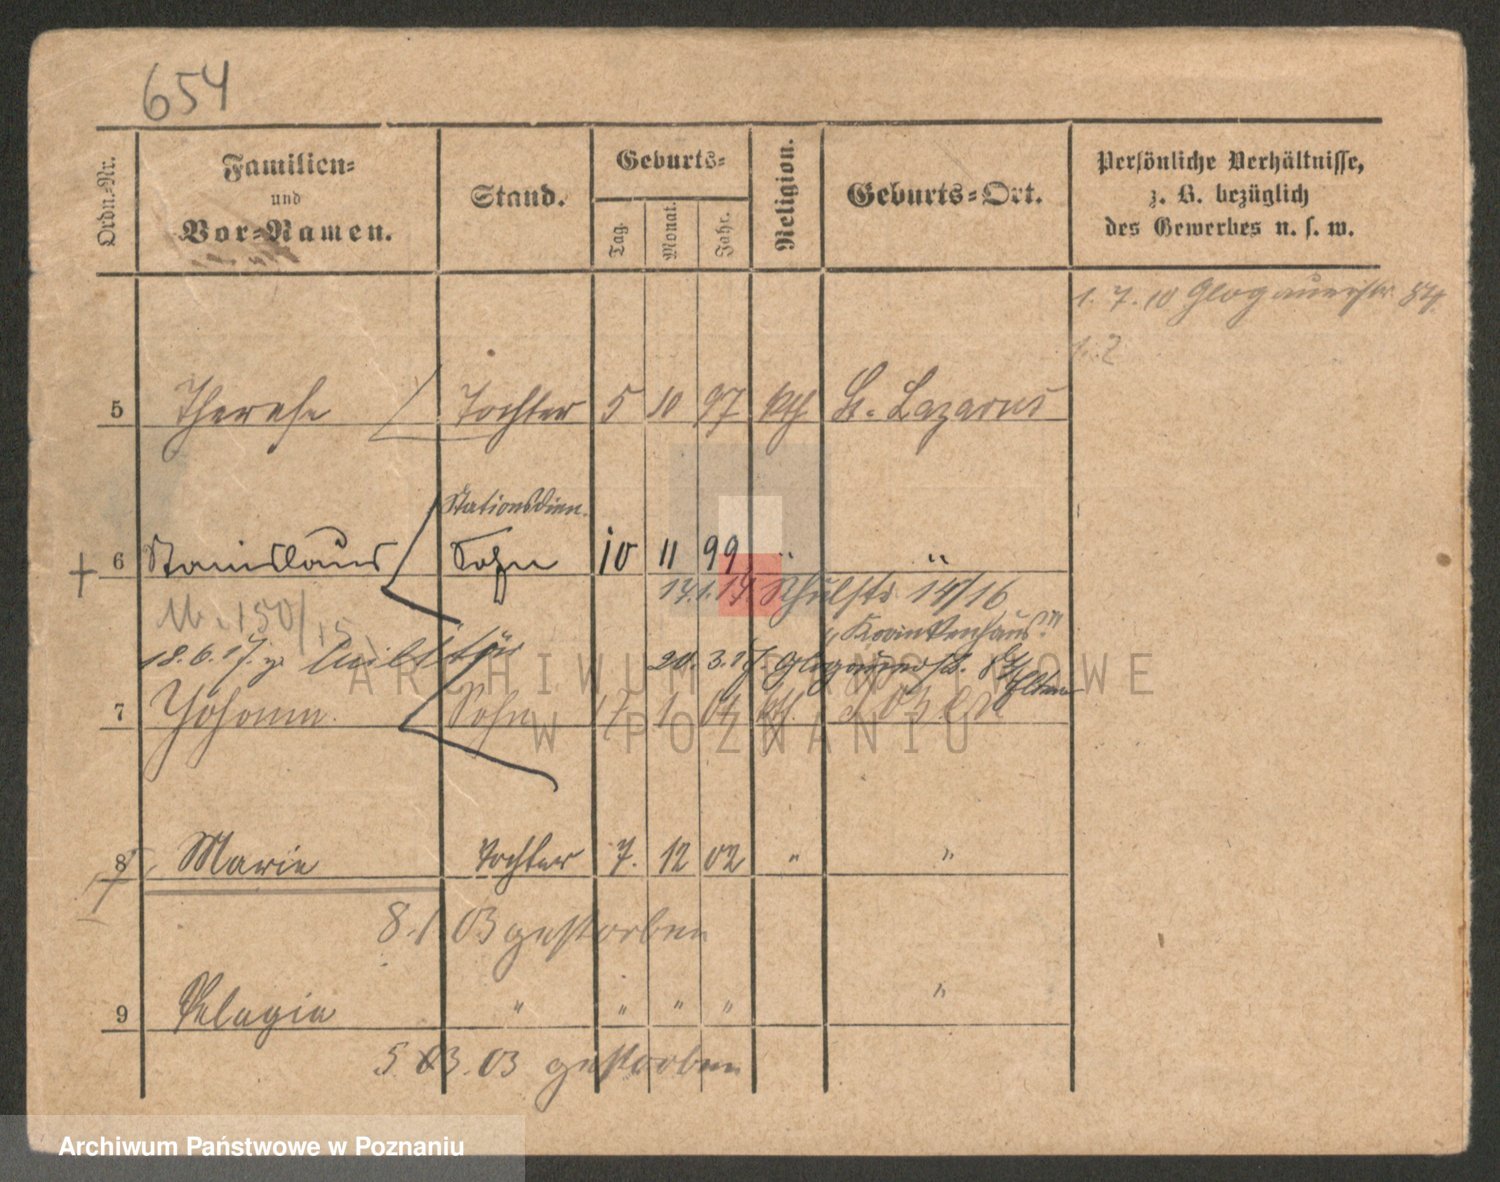 654
Ordn.-Nr.
Familien-
und
Vor-Namen.
Stand.
Geburts-
Tag.
Monat.
Jahr.
Religion.
Geburts-Ort.
Persönliche Verhältnisse,
z. B. bezüglich
des Gewerbes u. s. w.
1. 7. 10 Glogauerstr. 84.
5 Therese Tochter 5 10 97 kth St. Lazarus
Stationsdien.
6 Stanislaus Sohn 10 11 99 " "
17.1.17 Schulstr. 14/16
"Krankenhaus"
18.6.17. 20.3.17. Glogauerstr. Eltern
7 Johann Sohn 17 1 04 kth. Posen
8 Marie Tochter 7. 12 02 " "
8. 1 03 gestorben
9 Pelagia " " " " "
5. 03. 03 gestorben
ARCHIWUM PAŃSTWOWE
W POZNANIU
Archiwum Państwowe w Poznaniu